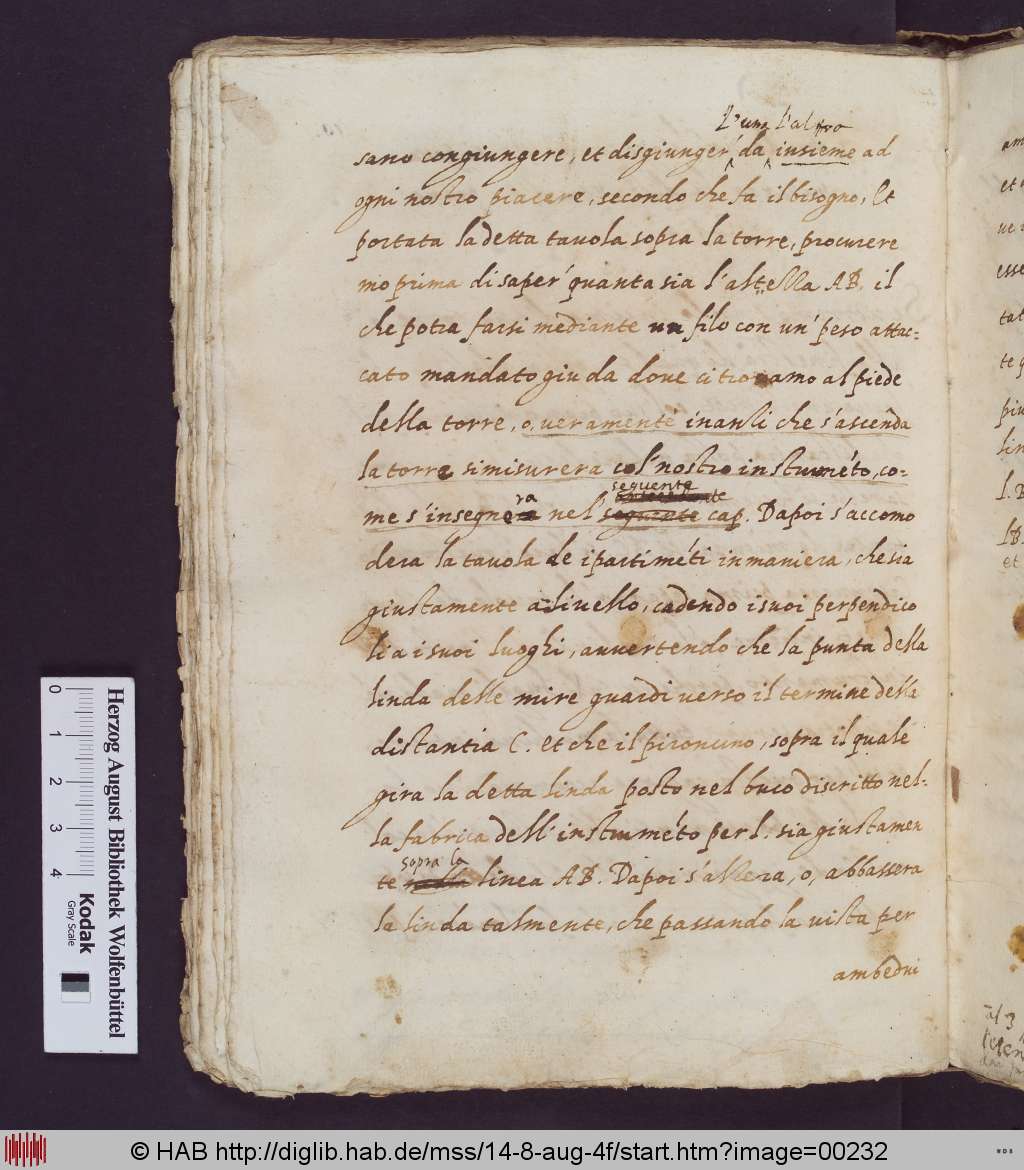 l'una l'altro
sano congiungere, et disgiunger' da insieme ad
ogni nostro piacere, secondo che fa il bisogno, Et
portata la detta tavola sopra la torre, procurere
mo prima di saper' quanta sia l'altella AB. il
che potra farsi mediante un filo con un' peso attac-
cato mandato giu da dove ci trovamo al piede
della torre, o, veramente inanzi che s'ascenda
la torre si misurera col' nostro instrumẽto, co-
sequente
antecedente
me s'insegnera nel' sequente cap. Dapoi s'accomo
dera la tavola de i partimẽti in maniera, che sia
giustamente a livello, cadendo i suoi perpendico
li a i suoi luoghi, auvertendo che la punta della
linda delle mire guardi verso il termine della
distantia C. et che il pironcino, sopra il quale
gira la detta linda posto nel buco discritto nel-
la fabrica dell' instrumẽto per l. sia giustamen
sopra la
te linea AB. Dapoi s'alzera, o, abbassera
la linda talmente, che passando la vista per
ambedui
Herzog August Bibliothek Wolfenbüttel
Kodak
Gray Scale
0 1 2 3 4
© HAB http://diglib.hab.de/mss/14-8-aug-4f/start.htm?image=00232